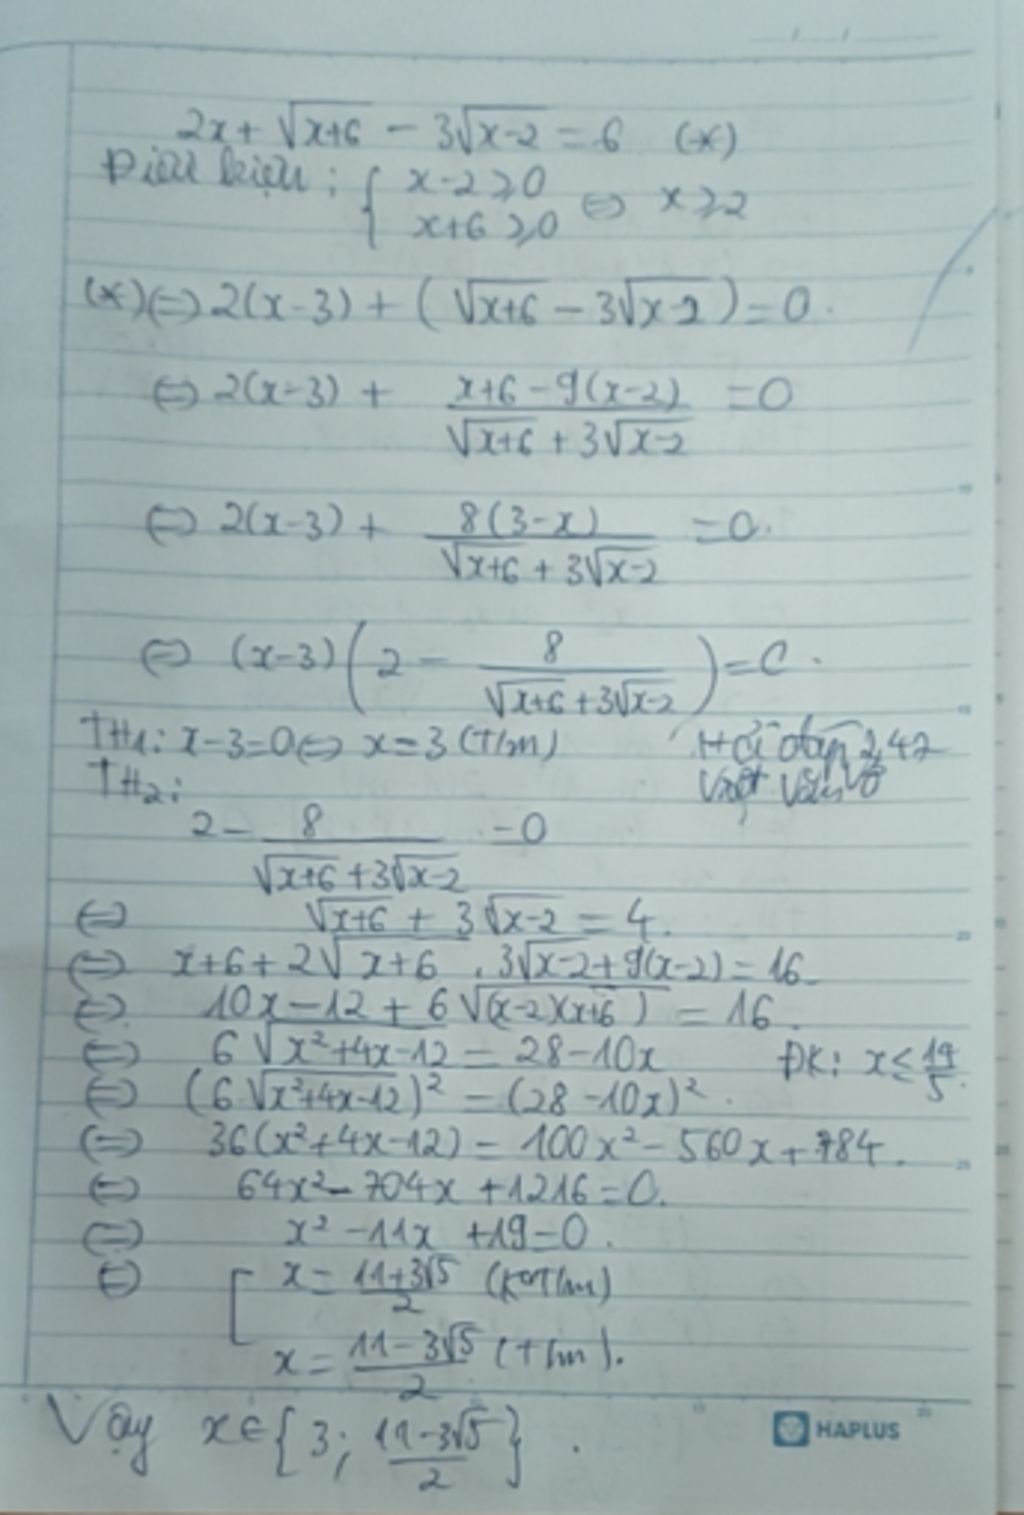 2x + √(x+6) - 3√(x-2) = 6 (*)
Điều kiện: { x-2 ≥ 0
x+6 ≥ 0 ⇔ x ≥ 2
(*) ⇔ 2(x-3) + (√(x+6) - 3√(x-2)) = 0.
⇔ 2(x-3) + (x+6-9(x-2))/(√(x+6) + 3√(x-2)) = 0
⇔ 2(x-3) + 8(3-x)/(√(x+6) + 3√(x-2)) = 0.
⇔ (x-3)(2 - 8/(√(x+6) + 3√(x-2))) = 0.
TH1: x-3=0 ⇔ x=3 (t/m)
Hỏi đáp 247
TH2:
2 - 8/(√(x+6) + 3√(x-2)) = 0
⇔ √(x+6) + 3√(x-2) = 4.
⇔ x+6+2√(x+6) . 3√(x-2) + 9(x-2) = 16
⇔ 10x-12 + 6√((x-2)(x+6)) = 16.
⇔ 6√(x²+4x-12) = 28-10x ĐK: x ≤ 14/5.
⇔ (6√(x²+4x-12))² = (28-10x)².
⇔ 36(x²+4x-12) = 100x² - 560x + 784.
⇔ 64x² - 704x + 1216 = 0.
⇔ x² - 11x + 19 = 0.
⇔ [ x = (11+3√5)/2 (ko t/m)
x = (11-3√5)/2 (t/m).
Vậy x ∈ {3; (11-3√5)/2}.
HAPLUS